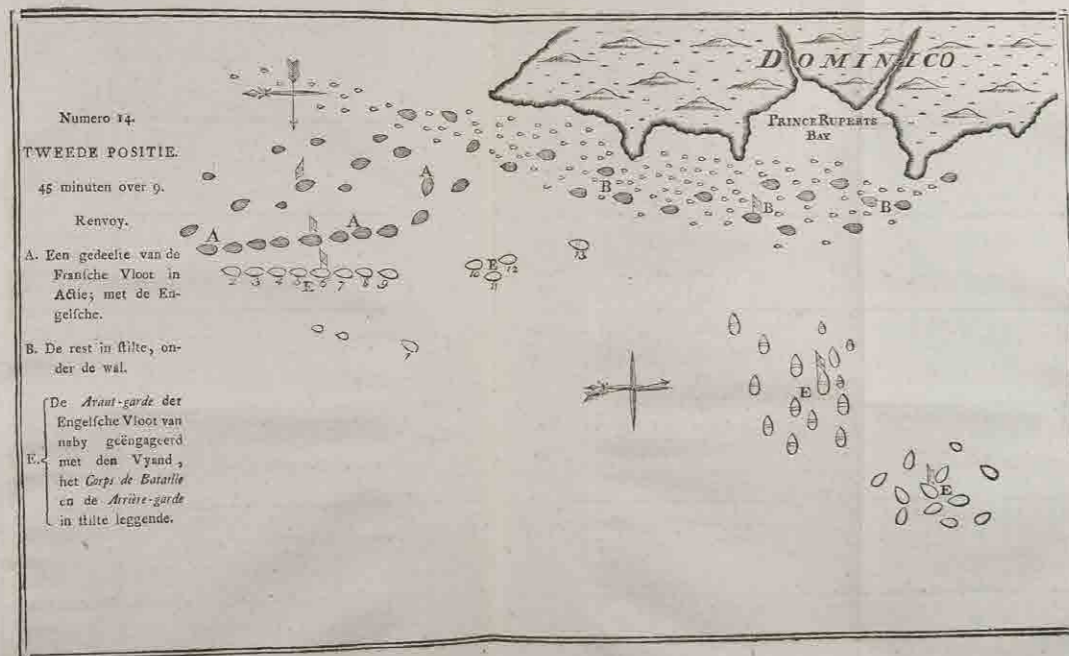 Numero 14.
TWEEDE POSITIE.
45 minuten over 9.
Renvoy.
A. Een gedeelte van de
Franſche Vloot in
Actie; met de En-
gelſche.
B. De rest in ſtilte, on-
der de wal.
De Avant-garde der
Engelſche Vloot van
naby geëngageerd
E. met den Vyand,
het Corps de Bataille
en de Arrière-garde
in ſtilte leggende.
DOMINICO
PRINCE RUPERTS
BAY
A
B
B
B
A
A
13
E
10 12
11
2 3 4 5 6 7 8 9
E
1
E
E